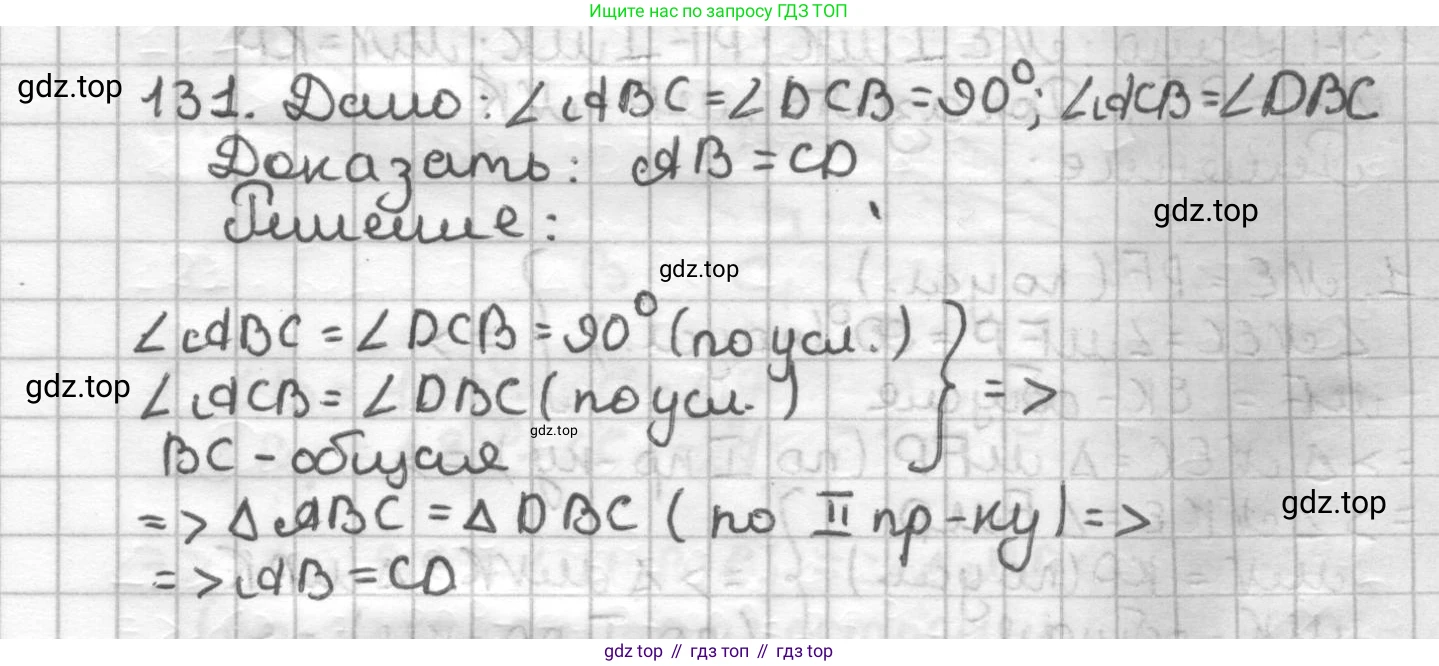 Ищите нас по запросу ГДЗ ТОП
gdz.top
131. Дано: ∠ABC = ∠DCB = 90°; ∠ACB = ∠DBC
Доказать: AB = CD
Решение:
gdz.top
gdz.top
∠ABC = ∠DCB = 90° (по усл.)
gdz.top
∠ACB = ∠DBC (по усл.) } =>
gdz.top
BC - общая
=> Δ ABC = Δ DBC (по II пр-ку) =>
gdz.top
=> AB = CD
gdz top // гдз топ // гдз top